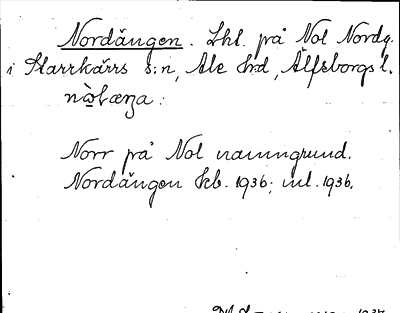 Nordängen. Lhl. på Nol Nordg.
i Starrkärrs s:n, Ale hrd, Älfsborgs l.
Norr på Nol namngrund.
Nordängen kb. 1936; ml. 1936.